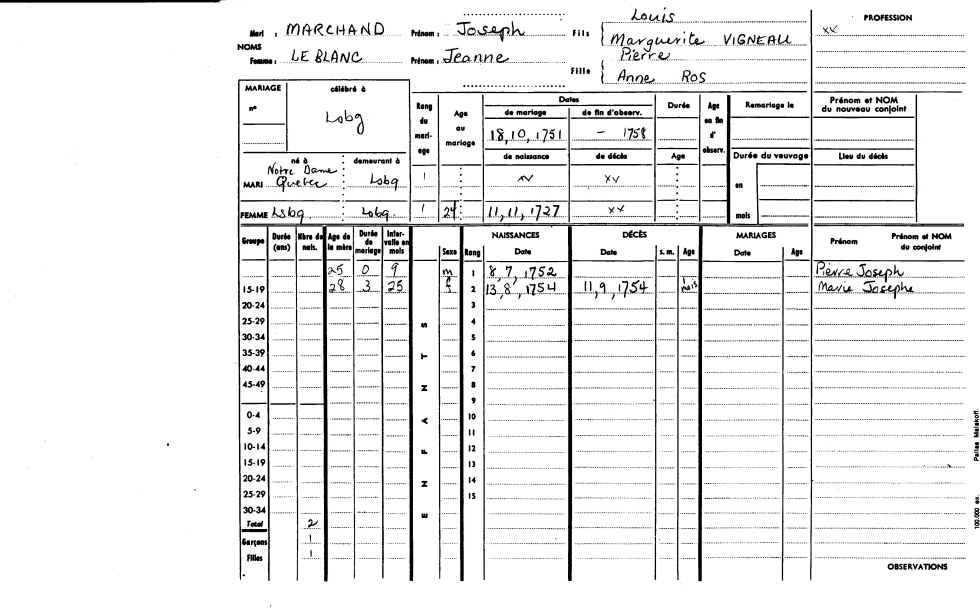 Mari : MARCHAND Prénom : Joseph Fils { Louis
Marguerite VIGNEAU
PROFESSION
xx
NOMS
Femme : LE BLANC Prénom : Jeanne Fille { Pierre
Anne Ros
MARIAGE célébré à
n° Lobg
Rang du mariage Age au mariage Dates Durée Age en fin d'observ. Remariage le Prénom et NOM du nouveau conjoint
de mariage de fin d'observ.
18,10,1751 - 1758
de naissance de décès Age Durée du veuvage Lieu du décès
né à demeurant à
MARI Notre Dame Quebec Lobg 1 xv xv en
FEMME Lsbg Lobg. 1 24 11,11,1727 xx mois
Groupe Durée (ans) Nbre de nais. Age de la mère Durée de mariage Intervalle en mois ENFANTS Sexe Rang NAISSANCES DÉCÈS MARIAGES Prénom Prénom et NOM du conjoint
Date Date s. m. Age Date Age
25 0 9 m 1 8,7,1752 Pierre Joseph
15-19 28 3 25 f 2 13,8,1754 11,9,1754 1 mois Marie Josephe
20-24 3
25-29 4
30-34 5
35-39 6
40-44 7
45-49 8
9
0-4 10
5-9 11
10-14 12
15-19 13
20-24 14
25-29 15
30-34
Total 2
Garçons 1
Filles 1
OBSERVATIONS
100,000 ex. Pallas Malakoff.